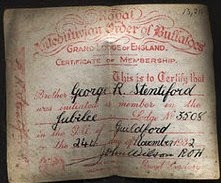 Royal
Antediluvian Order of Buffaloes
GRAND LODGE OF ENGLAND.
CERTIFICATE OF MEMBERSHIP.
This is to Certify that
Brother George R. Stentiford
was initiated a member in the
Jubilee Lodge No. 5508
in the Guildford
the 24th of November 1932
John Wilson ROH